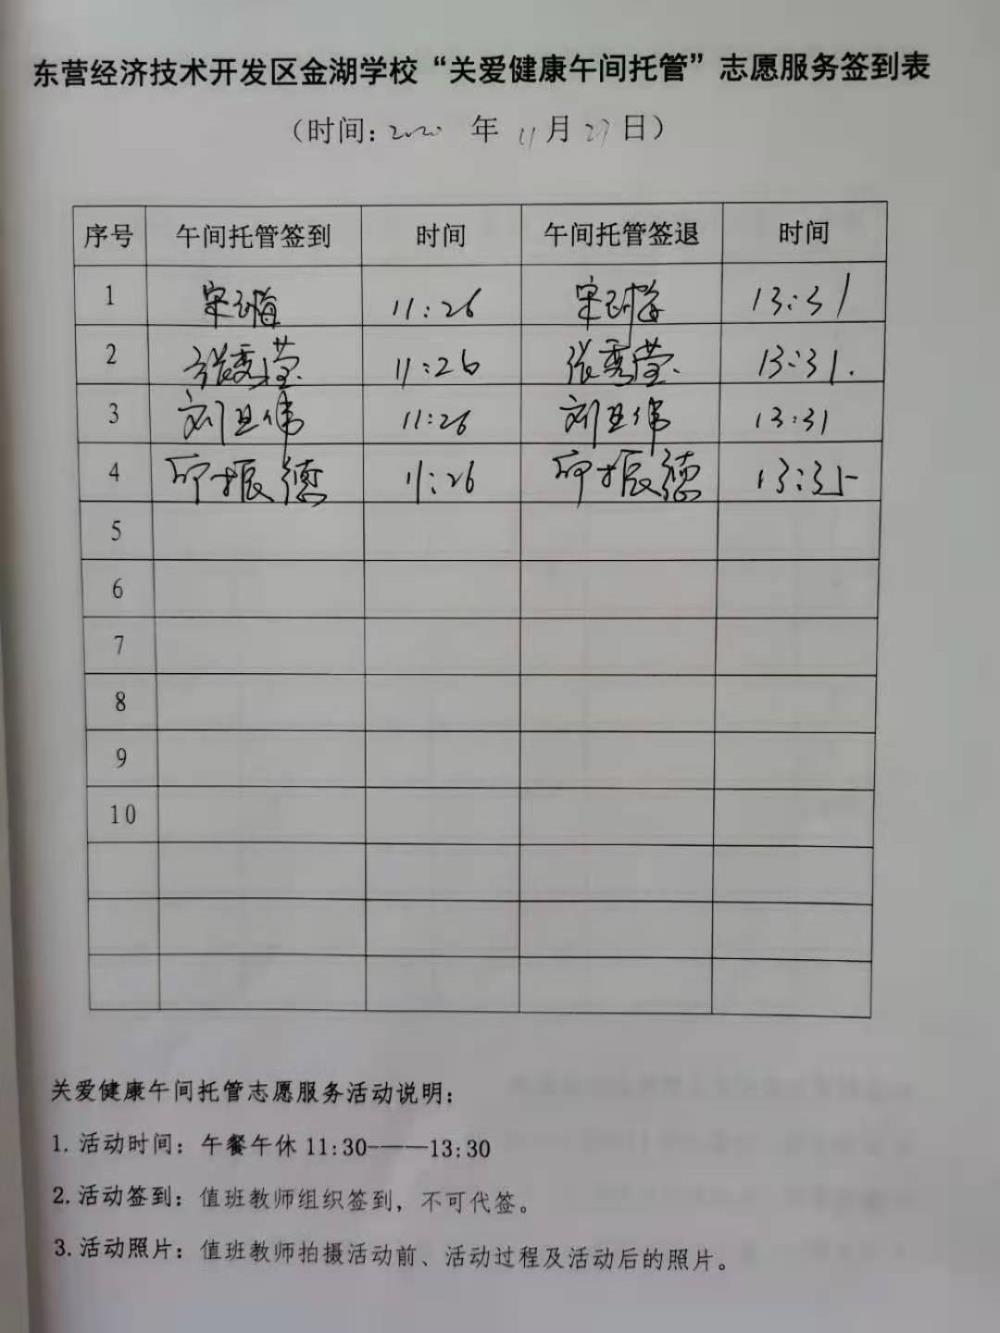 东营经济技术开发区金湖学校“关爱健康午间托管”志愿服务签到表
（时间：2020 年 11 月 27 日）
序号 午间托管签到 时间 午间托管签退 时间
1 11:26 13:31
2 张秀莹 11:26 张秀莹 13:31.
3 刘卫伟 11:26 刘卫伟 13:31
4 振德 11:26 振德 13:35
5
6
7
8
9
10
关爱健康午间托管志愿服务活动说明：
1. 活动时间：午餐午休 11:30——13:30
2. 活动签到：值班教师组织签到，不可代签。
3. 活动照片：值班教师拍摄活动前、活动过程及活动后的照片。